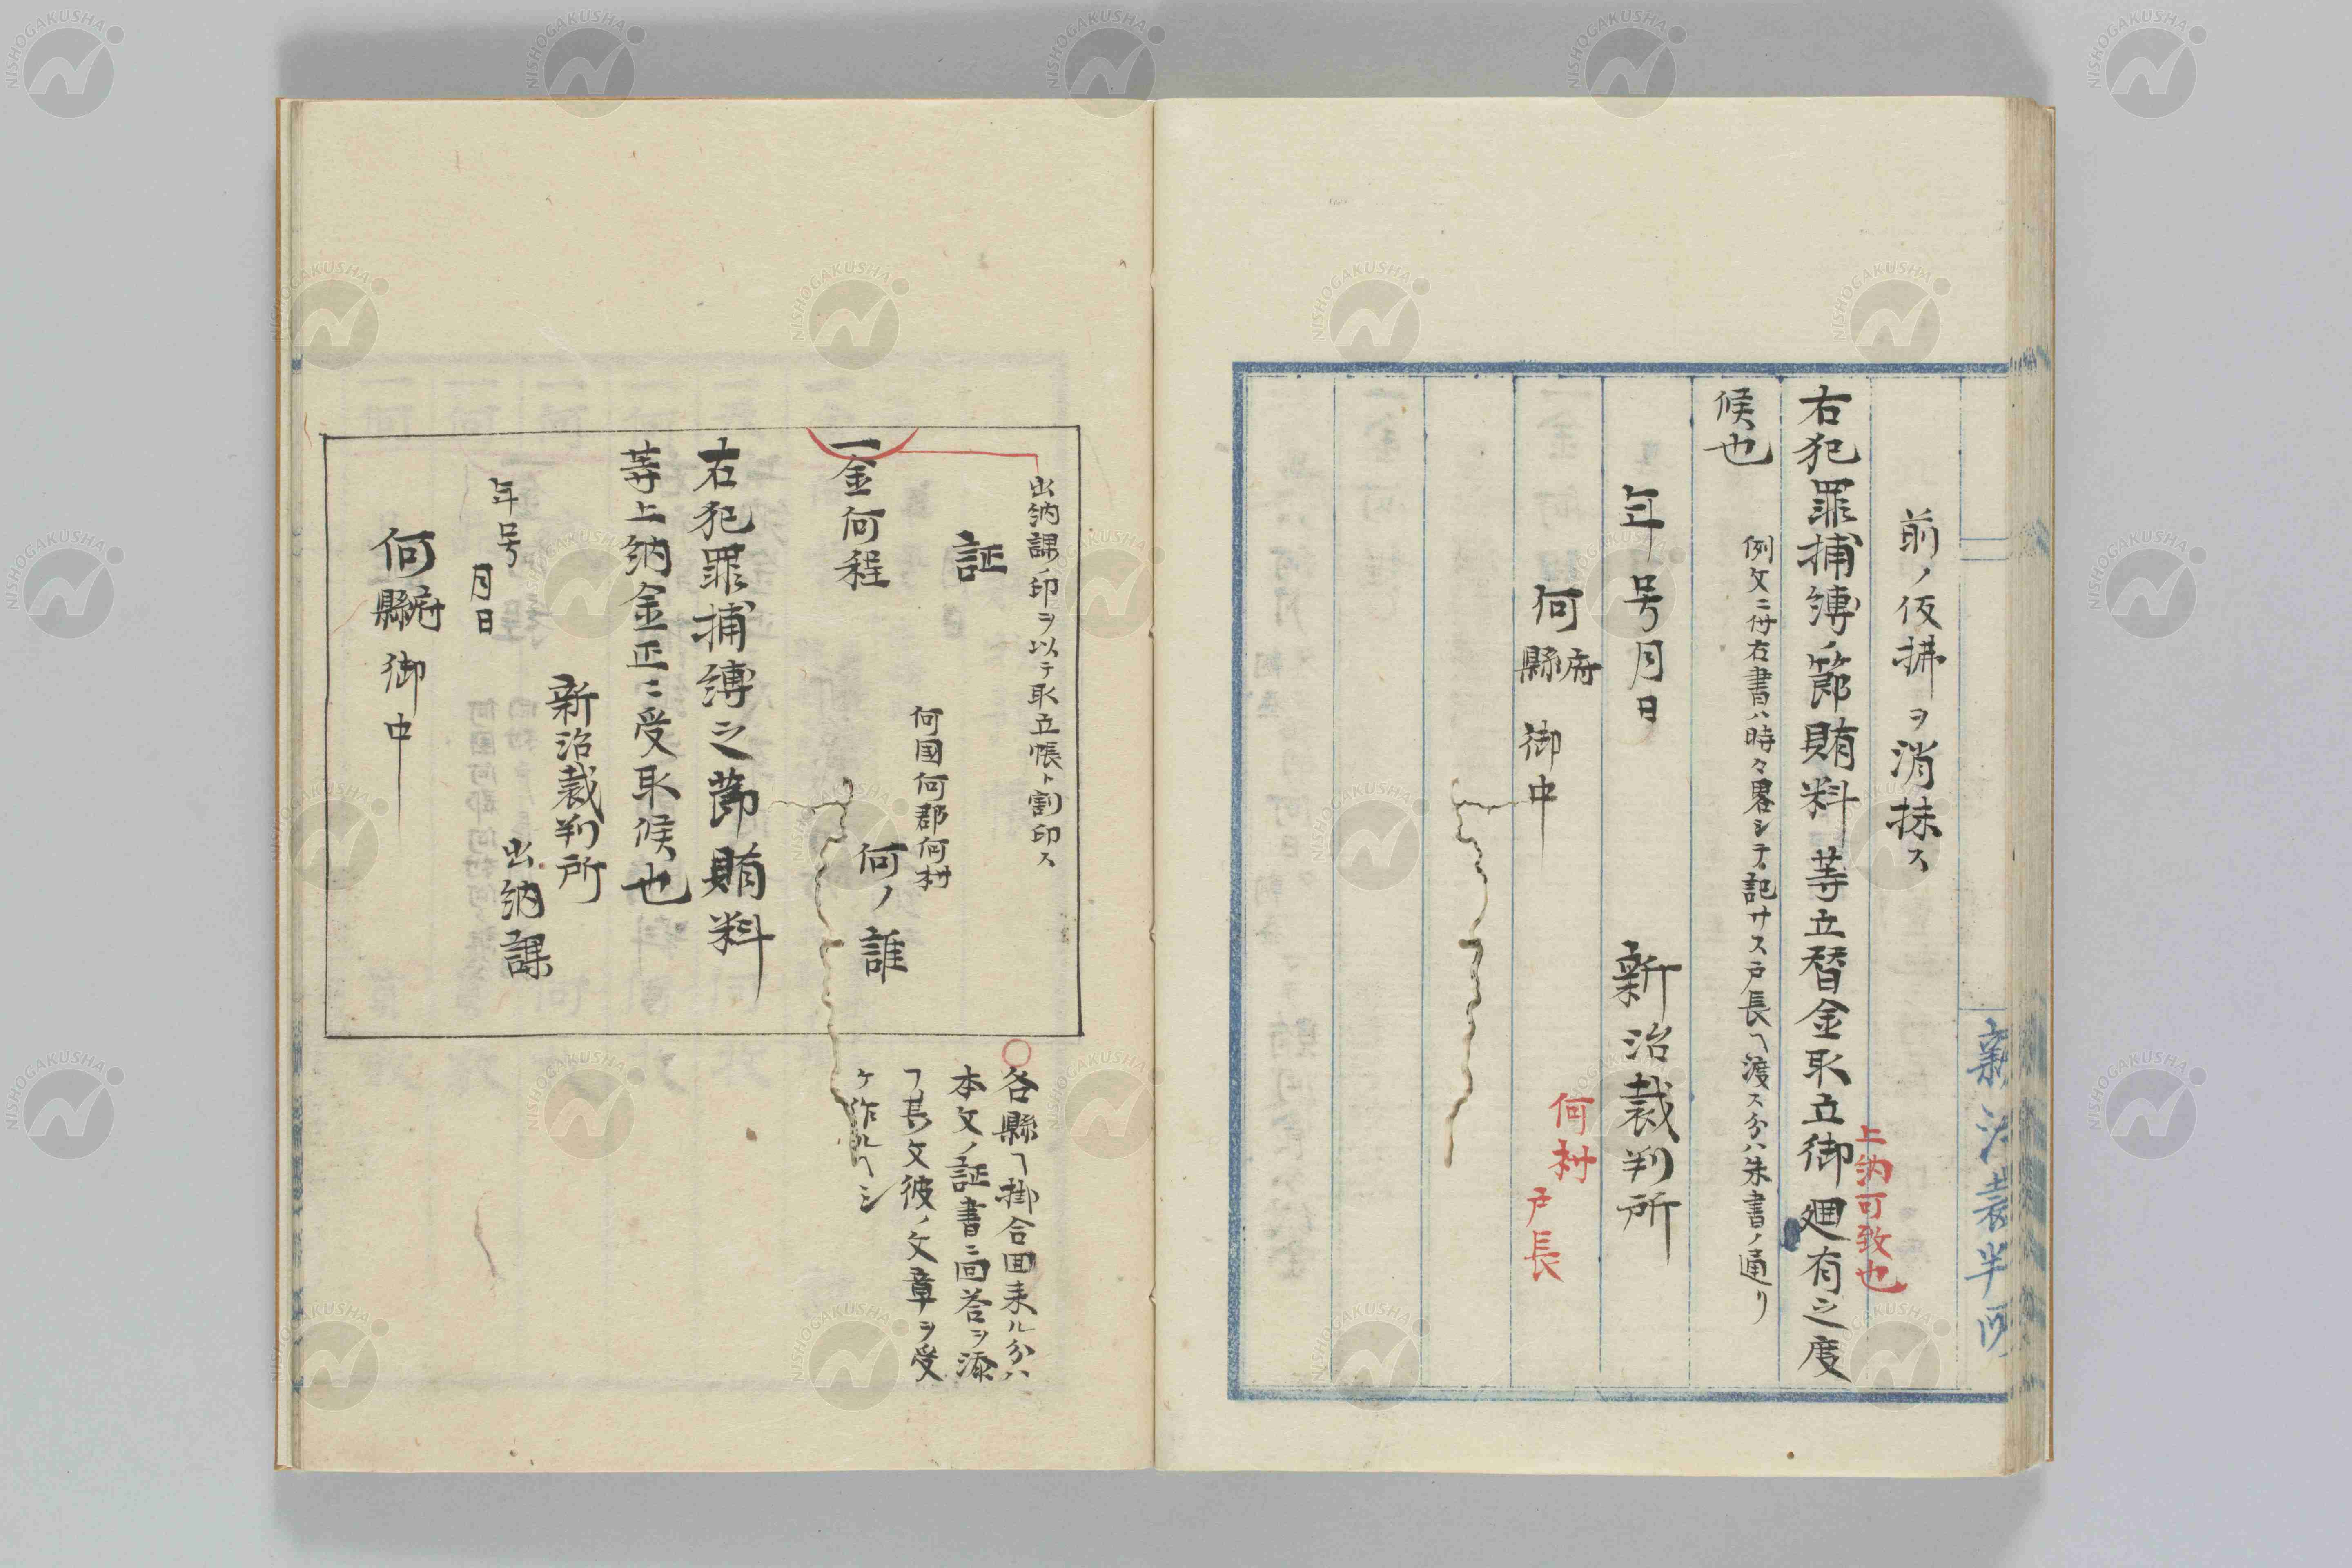 前ノ仮拂ヲ消抹ス
右犯罪捕縛ノ節賄料等立替金取立御廻有之度
上納可致也
候也
例文ニ付右書ハ時々畧シテ記サス戸長ヘ渡ス分ハ朱書ノ通リ
年号月日
新治裁判所
何府縣御中
何村
戸長
新治裁判所
出納課ノ印ヲ以テ取立帳ト割印ス
証
何国何郡何村
何ノ誰
一金何程
右犯罪捕縛之節賄料
等上納金正ニ受取候也
新治裁判所
出納課
年号
月日
何府縣御中
○各縣ヘ掛合回来ル分ハ
本文ノ証書ニ回答ヲ添
フ其文彼ノ文章ヲ受
ケ作ルヘシ
NISHOGAKUSHA